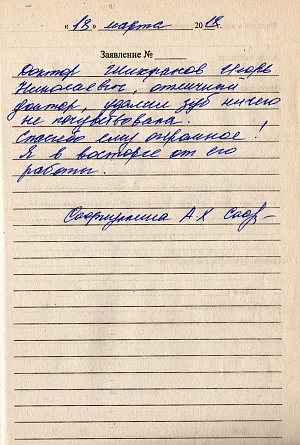 « 13 » марта 2018.
Заявление №
Доктор Игорь
Николаевич, отличный
доктор, удалил зуб ничего
не почувствовала.
Спасибо ему огромное!
Я в восторге от его
работы.
А.Х